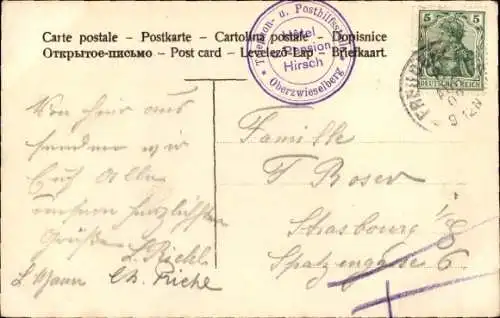 Carte postale - Postkarte - Cartolina postale - Dopisnice
Открытое-письмо - Post card - Levelező-Lap - Briefkaart.
Telefon- u. Posthilfsstelle
Hôtel
& Pension
Hirsch
Oberzwieselberg
5 5
DEUTSCHES REICH
9-12N
Von hier aus
senden wir
Euch Allen
unsere herzlichsten
Grüße
Familie
F Boser
Strasbourg i/E
Spatzengasse 6